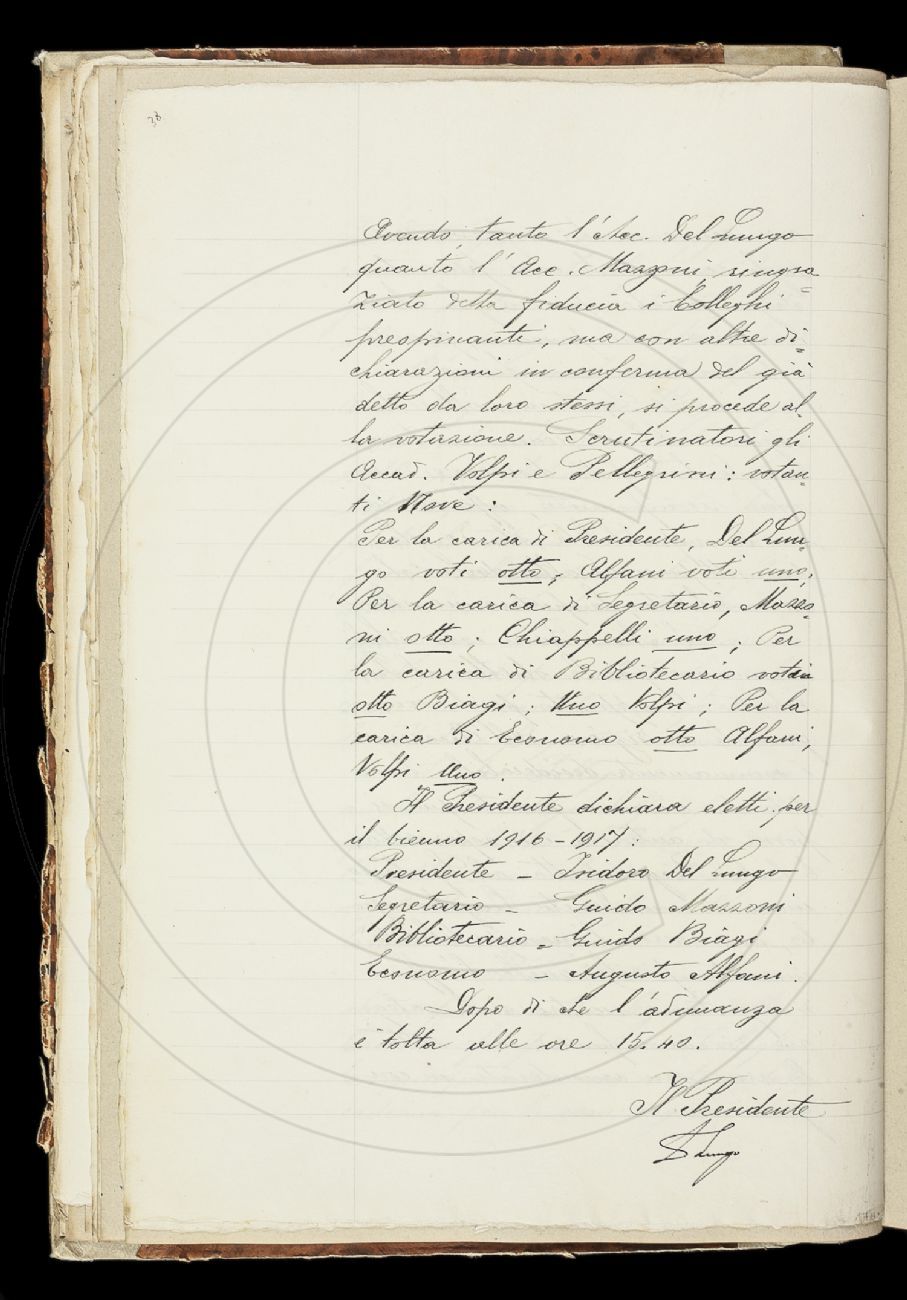 38
Avendo, tanto l'Acc. Del Lungo
quanto l'Acc. Mazzoni, ringra=
ziato della fiducia i Colleghi
preopinanti, ma con altre di=
chiarazioni in conferma del già
detto da loro stessi, si procede al=
la votazione. Scrutinatori gli
Accad. Volpi e Pellegrini: votan=
ti Nove:
Per la carica di Presidente, Del Lun=
go voti otto; Alfani voti uno;
Per la carica di Segretario, Mazzo=
ni otto; Chiappelli uno; Per
la carica di Bibliotecario votan
otto Biagi; Uno Volpi; Per la
carica di Economo otto Alfani;
Volpi Uno.
Il Presidente dichiara eletti per
il bienno 1916-1917:
Presidente - Isidoro Del Lungo
Segretario - Guido Mazzoni
Bibliotecario = Guido Biagi
Economo - Augusto Alfani.
Dopo di che l'adunanza
è tolta alle ore 15.40.
Il Presidente
D Lungo